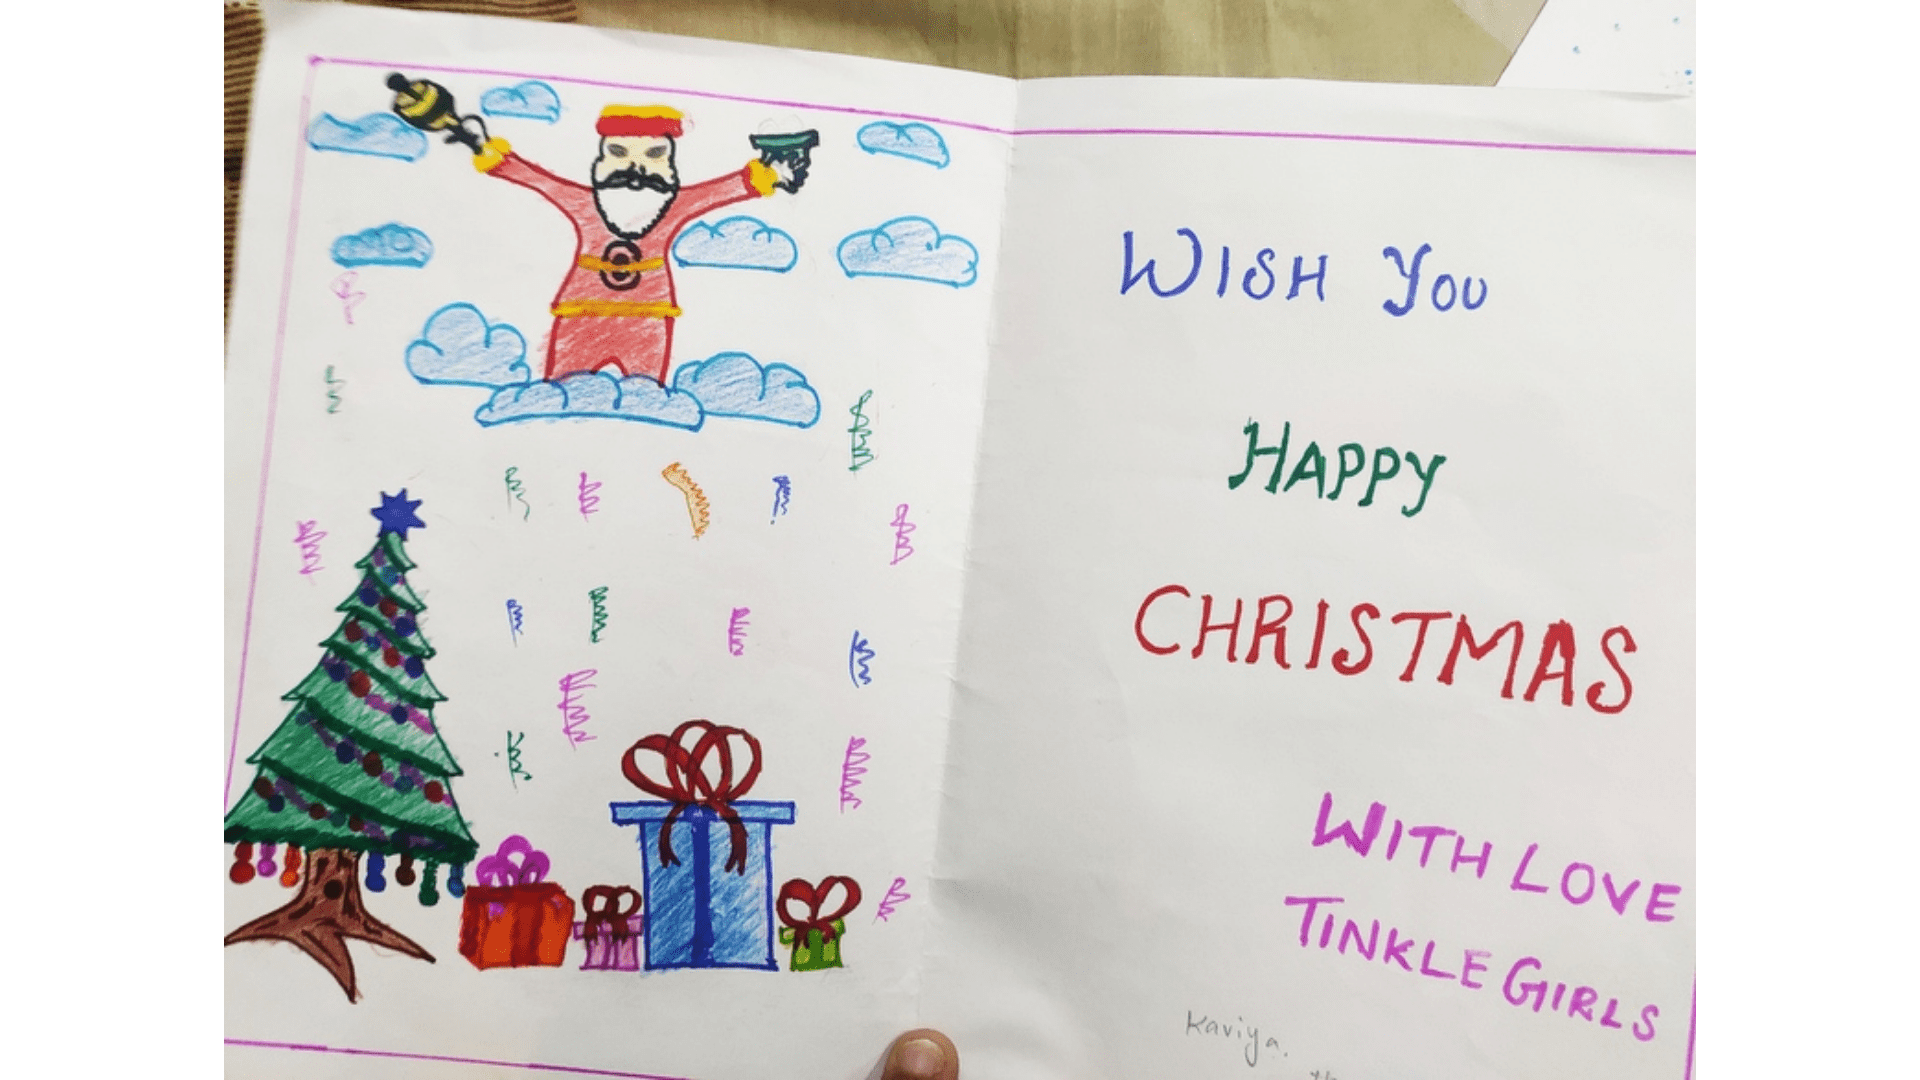 WISH YOU
HAPPY
CHRISTMAS
WITH LOVE
TINKLE GIRLS
Kaviya.